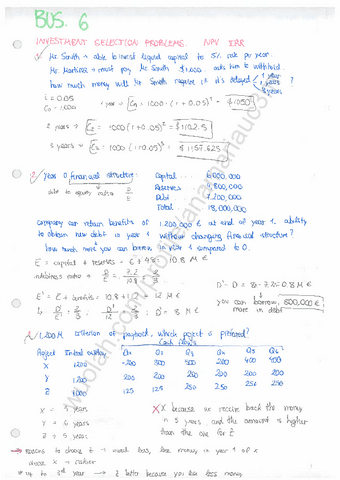 BUS. 6
INVESTMENT SELECTION PROBLEMS. NPV IRR
Mr Smith → able to invest liquid capital to 5% rate per year
Mr Martinez → must pay Mr Smith $1.000 asks him to withhold.
how much money will Mr Smith require if it's delayed 1 year ?
2 years
3 years
i = 0.05
C0 = 1000
1 year = C1 = 1000 · (1 + 0.05)^1 = $1050
2 years → C2 = 1000 (1+0.05)^2 = $1102.5
3 years → C3 = 1000 (1+0.05)^3 = $1157.625
2/ year 0 financial structure: Capital ... 6,000,000
debt to equity ratio D/E Reserves .. 4,800,000
Debt ... 7,200,000
Total ... 18,000,000
company can retain benefits of 1.200.000 € at end of year 1. ability
to obtain new debt in year 1 without changing financial structure?
how much more you can borrow in year 1 compared to 0.
E = capital + reserves = 6 + 4.8 = 10.8 M €
D/E = 7.2/10.8 = 2/3
E' = E + benefits = 10.8 + 1.2 = 12 M €
D'/E' = 2/3 D'/12 = 2/3 D' = 8 M €
D' - D = 8 - 7.2 = 0.8 M €
you can borrow 800,000 €
more in debt
1,200 M criterion of payback, which project is preferred?
Cash flows
Project Initial outlay Q1 Q2 Q3 Q4 Q5 Q6
X 1200 -200 300 500 200 400 400
Y 1200 200 200 200 200 200 200
Z 1000 125 125 250 250 250 250
X = 5 years
Y = 6 years
Z = 5 years
X because we receive back the money
in 5 years and the amount is higher
than the one for Z
wuolah.com/profesionalmarlau03